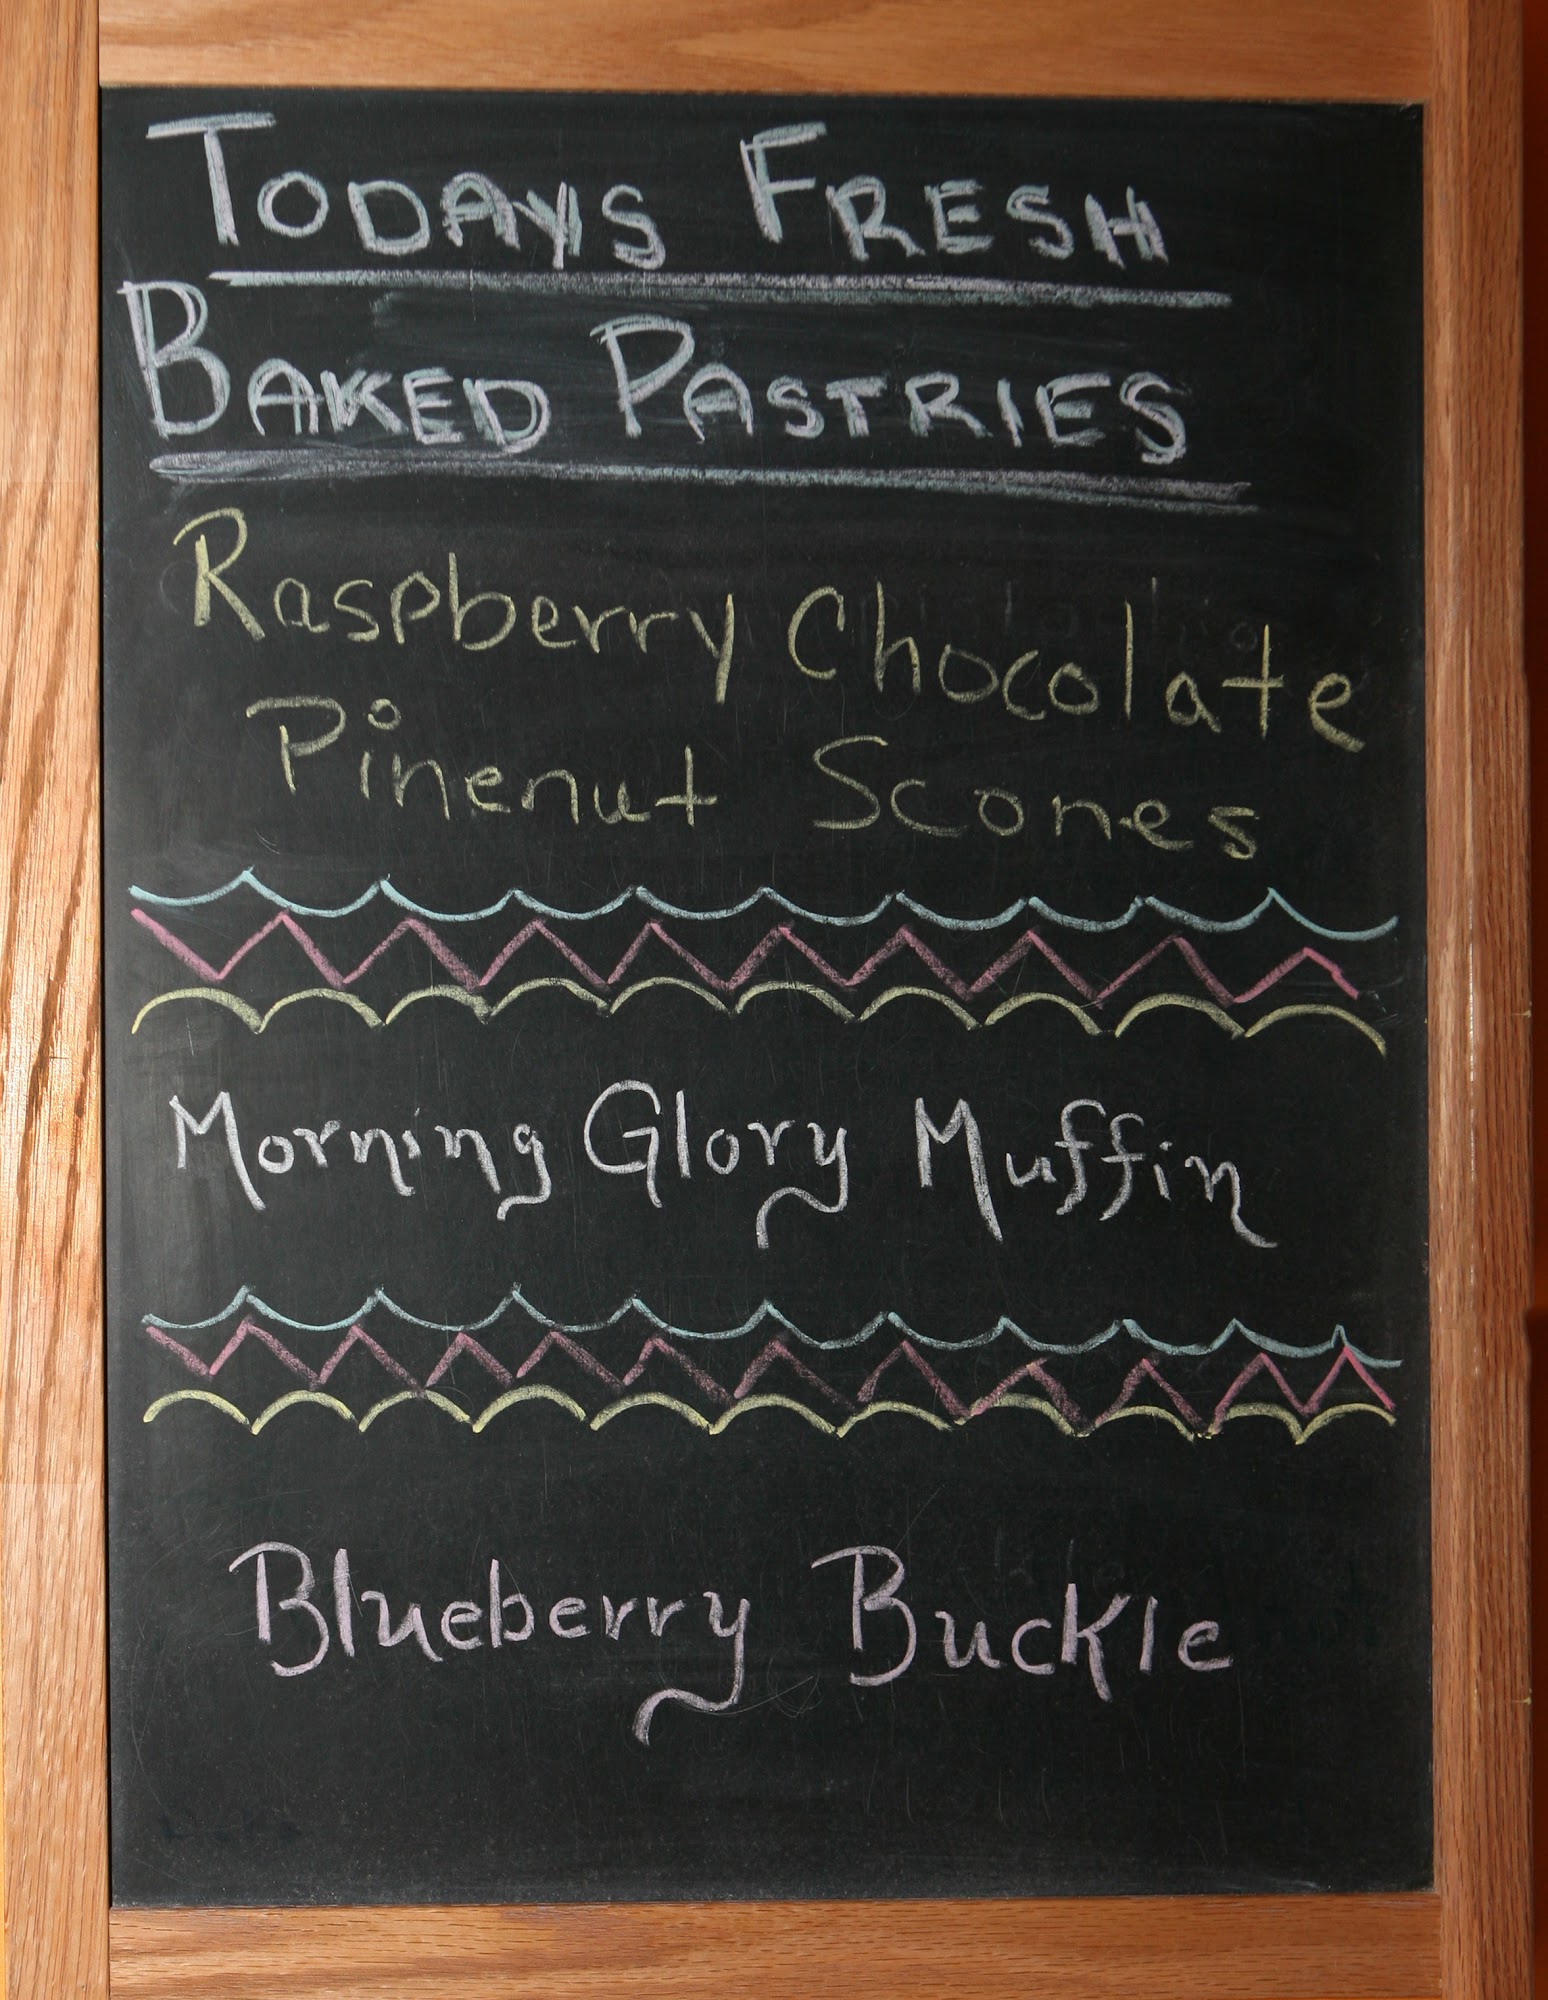 TODAYS FRESH
BAKED PASTRIES
Raspberry Chocolate
Pinenut Scones
Morning Glory Muffin
Blueberry Buckle